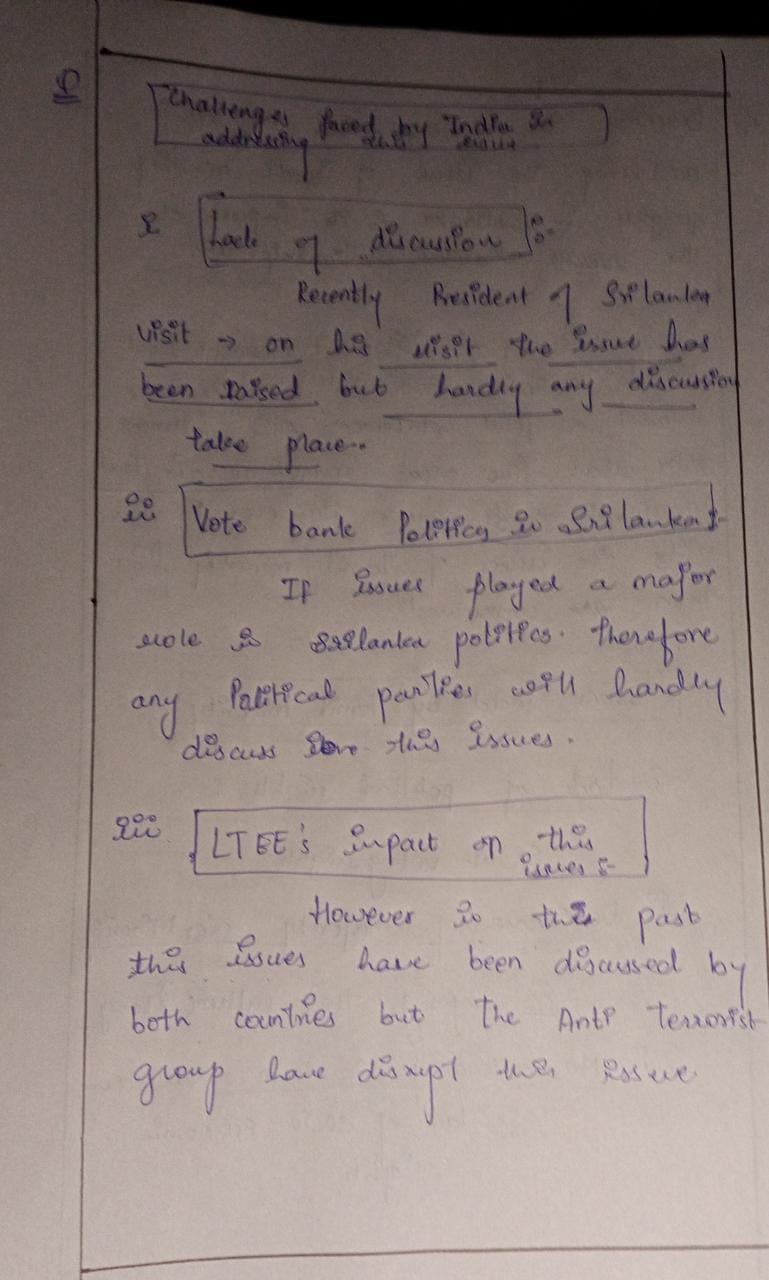 Challenges faced by India in
addressing this issue
i Lack of discussion :-
Recently President of Srilanka
visit → on his visit the issue has
been raised but hardly any discussion
take place..
ii Vote bank Politics in Srilanka :-
If issues played a major
role in Srilanka politics. therefore
any Political parties will hardly
discuss this issues.
iii LTEE's impact on this
issues :-
However in the past
this issues have been discussed by
both countries but the Anti terrorist
group have disrupt this issue